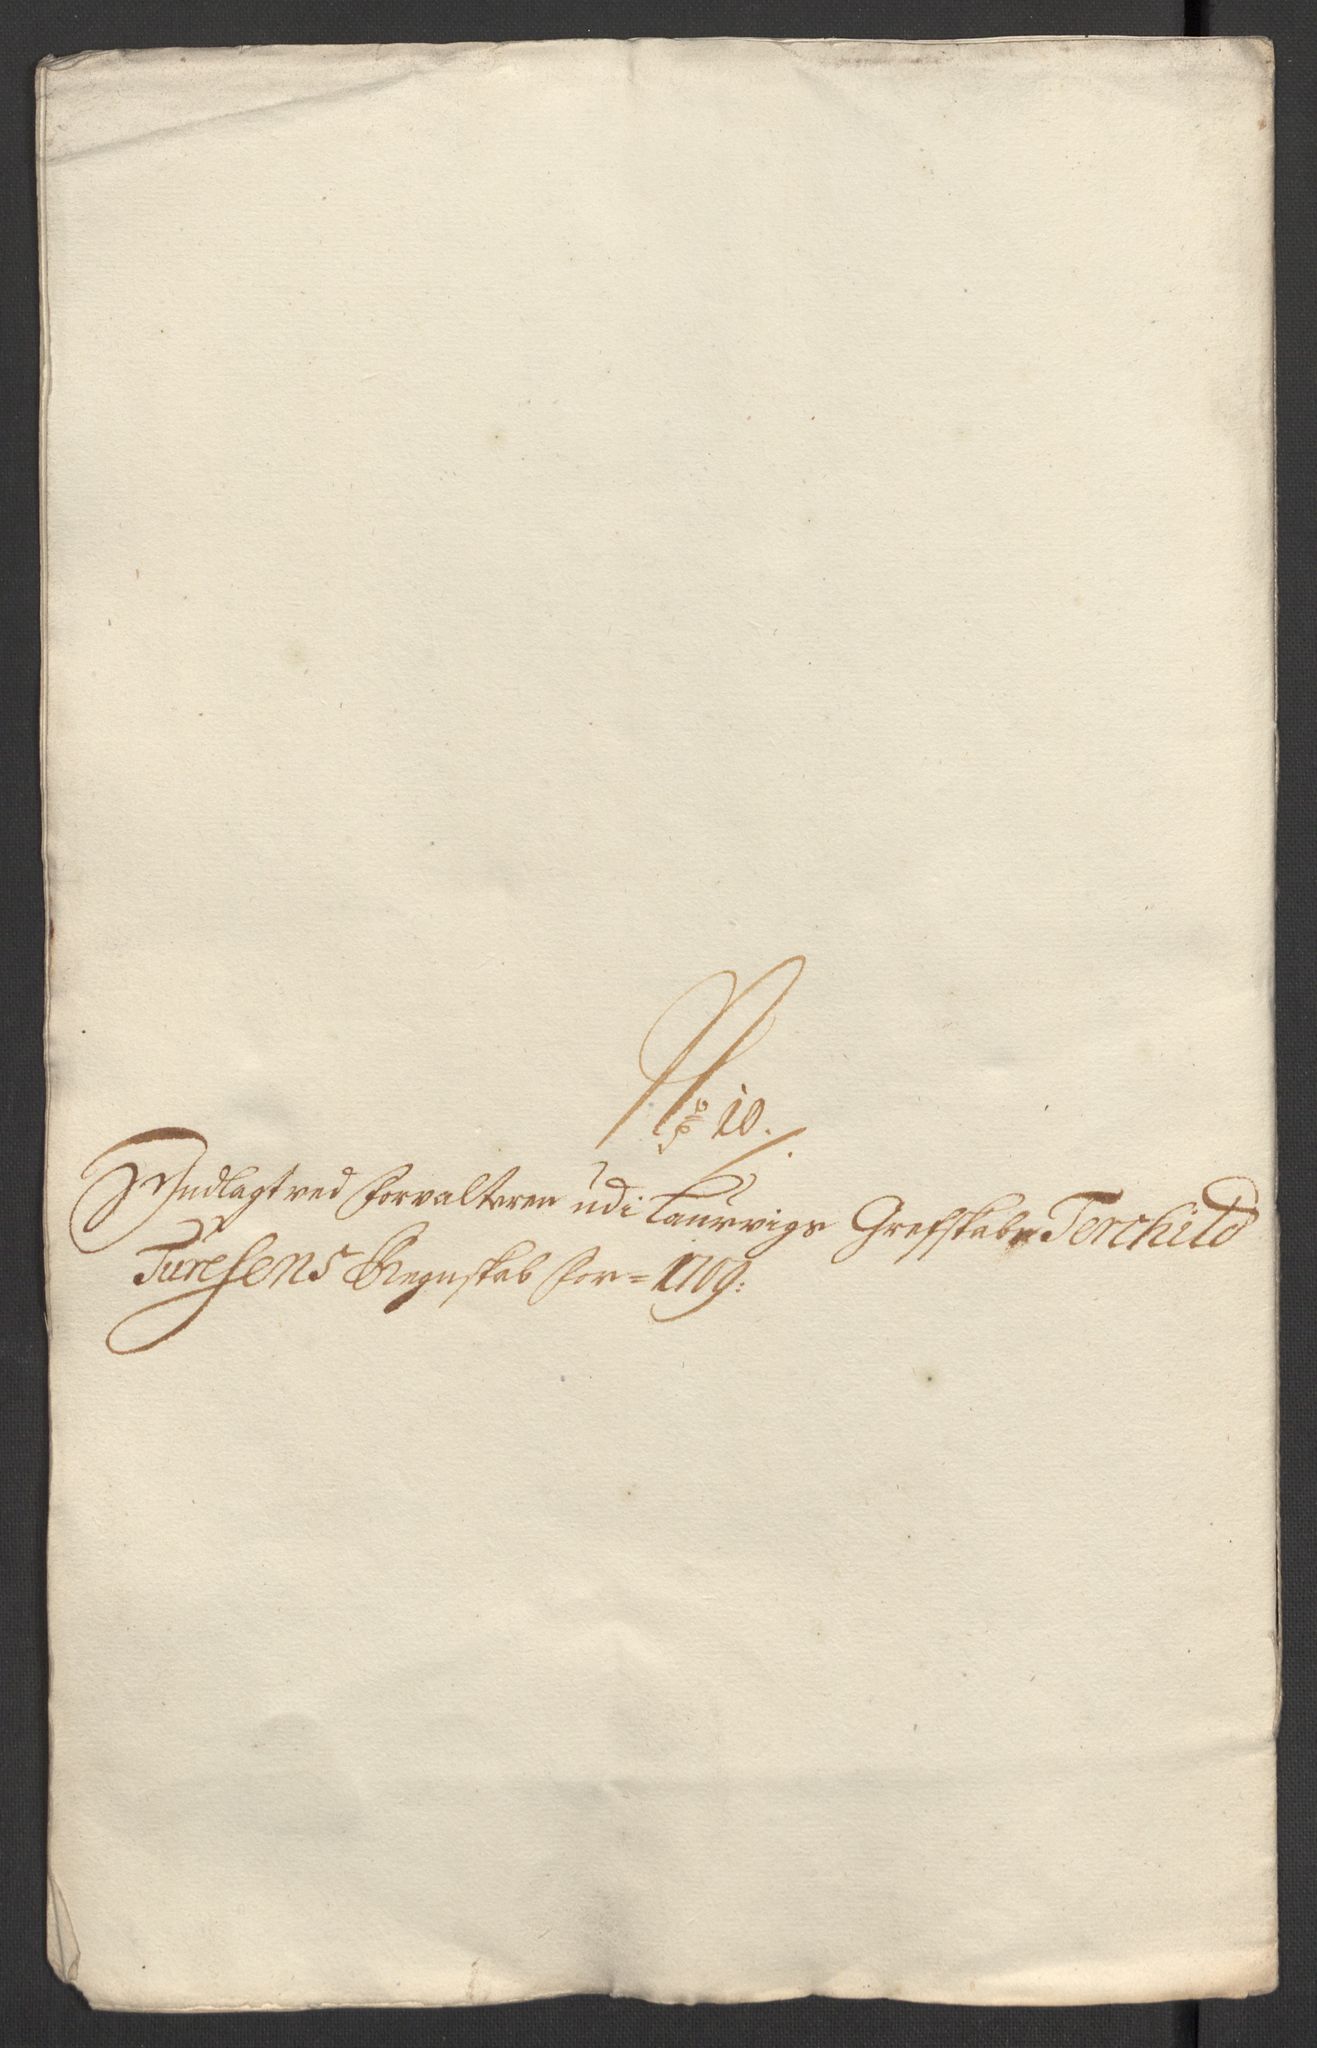 No 10.
Indlagt ved Forvalteren udi Laurvigs Grefskab Terchild
Turesens Regnskab for 1709: